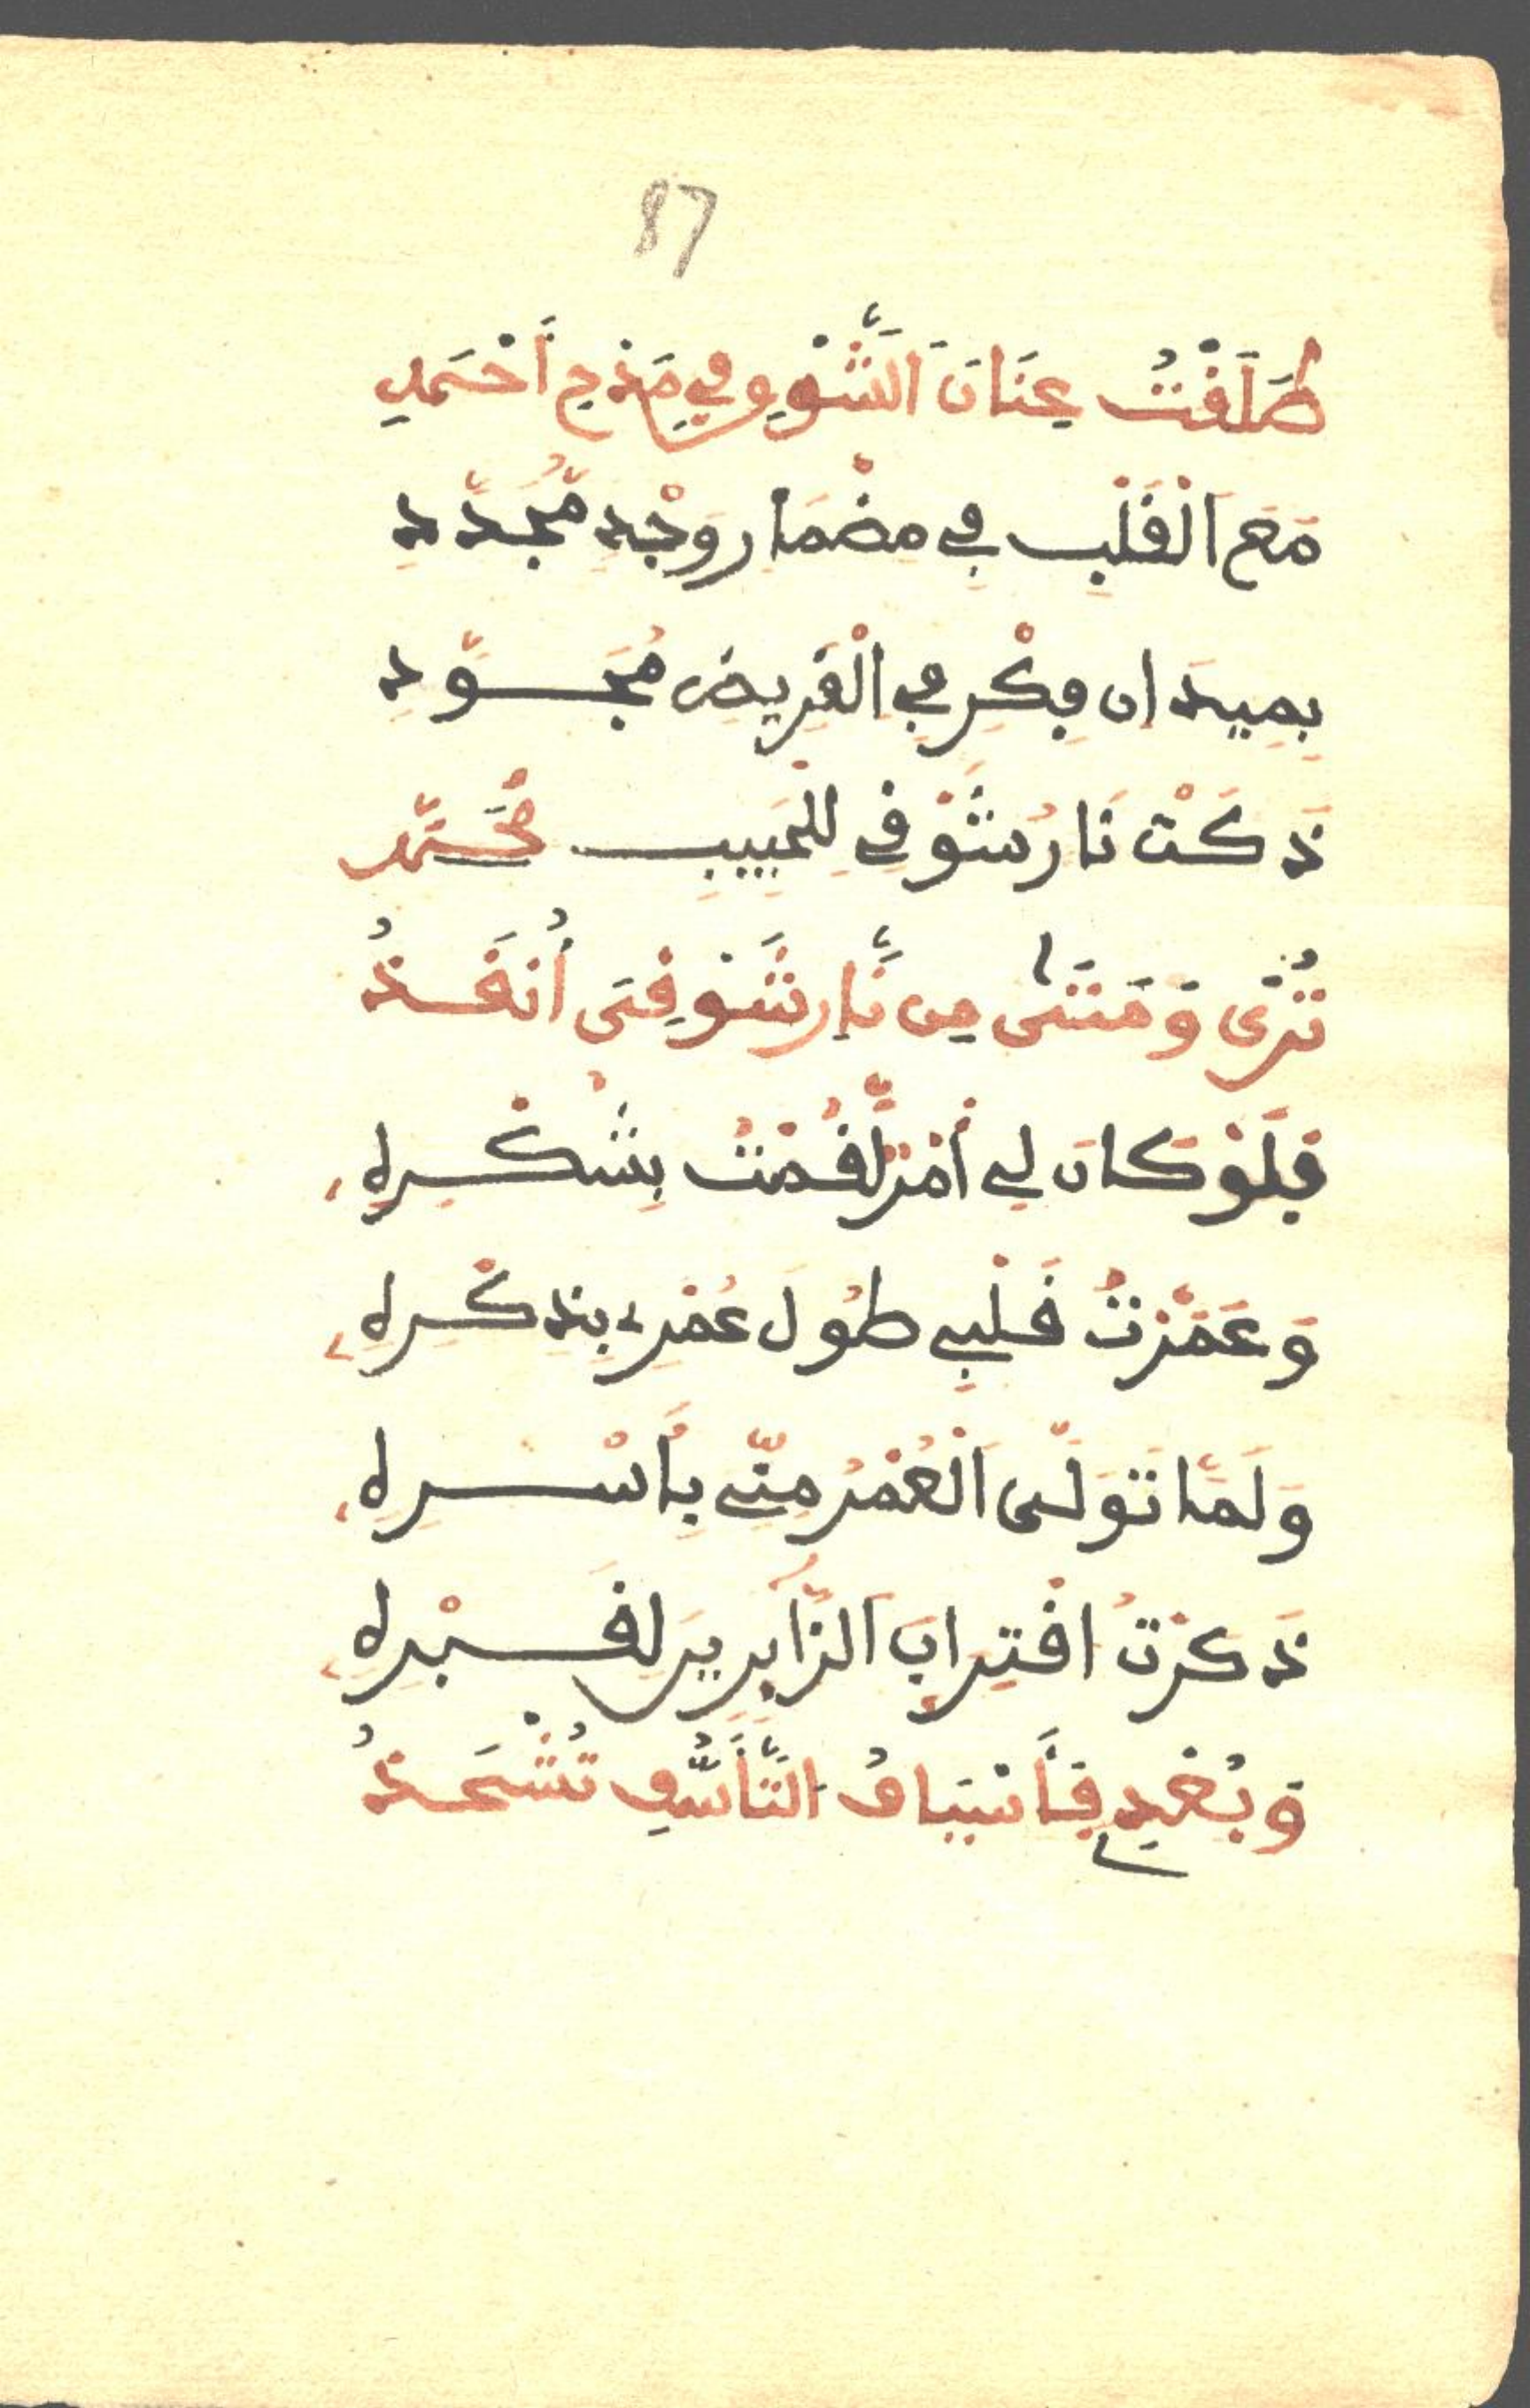 87
طَلَقْتُ عِنَانَ الشَّوْقِ فِي مَدْحِ أَحْمَدِ
مَعَ الْقَلْبِ فِي مِضْمَارِ وَجْدٍ مُّجَدَّدِ
بِمِيدَانِ فِكْرٍ فِي الْقَرِيضِ مُجَوَّدِ
ذَكَتْ نَارُ شَوْقِي لِلْحَبِيبِ مُحَمَّدِ
تُرَى وَمَتَى مِن نَّارِ شَوْقِيَ أُنقَذُ
فَلَوْ كَانَ لِي أَمْرٌ لَّقُمْتُ بِشُكْرِهِ
وَعَمَّرْتُ قَلْبِي طُولَ عُمْرِي بِذِكْرِهِ
وَلَمَّا تَوَلَّى الْعُمْرُ مِنِّي بِأَسْرِهِ
ذَكَرْتُ اقْتِرَابَ الزَّائِرِينَ لِقَبْرِهِ
وَبُعْدِي فَأَسْيَافُ التَّأَسُّفِ تُشْحَذُ